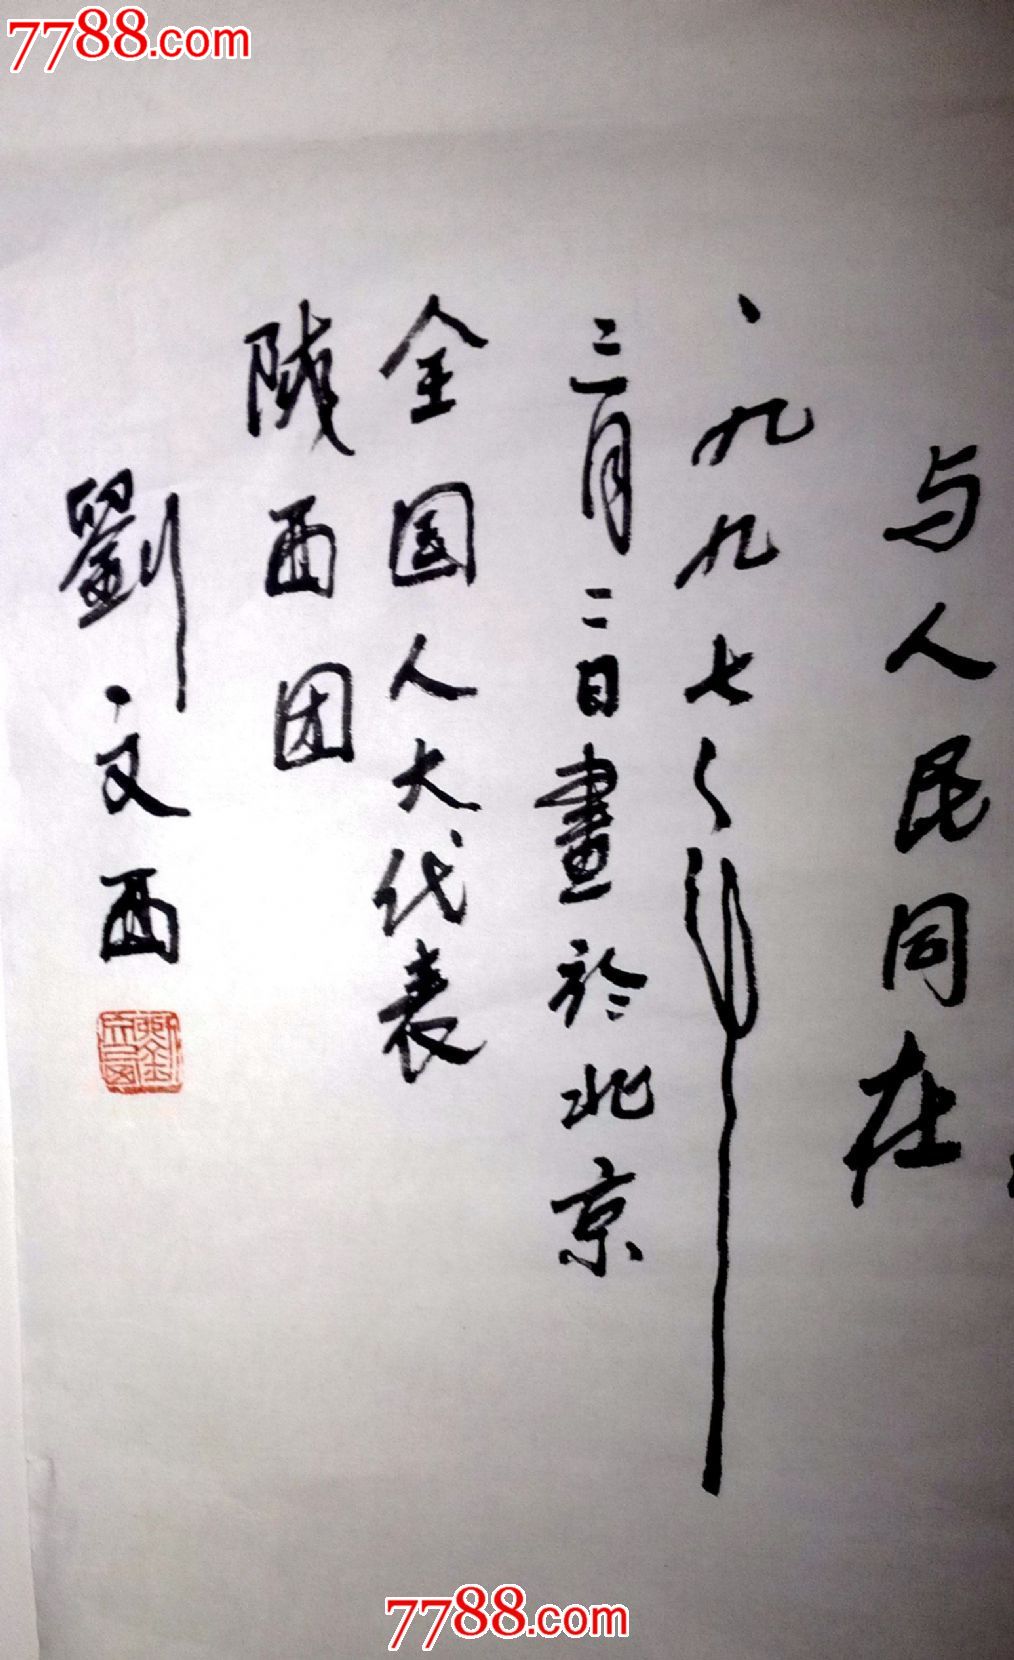 7788.com
与人民同在
一九九七年
三月二日畫於北京
全国人大代表
陕西团
劉文西
7788.com